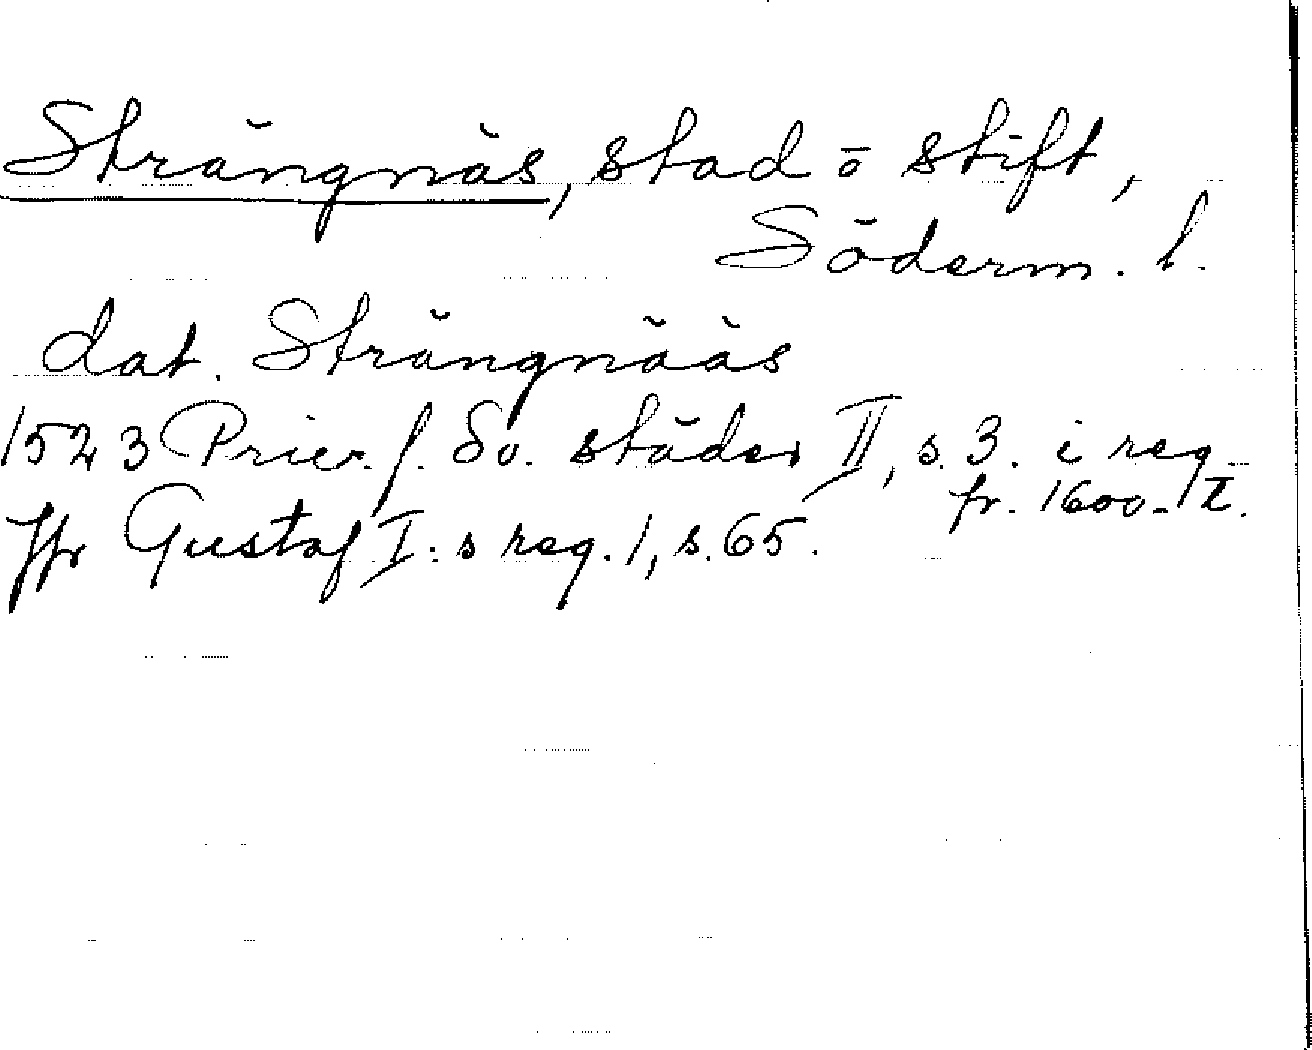 Strängnäs, stad o stift,
Söderm. l.
dat. Strängnääs
1523 Privr. f. Sv. städer II, s. 3. i reg.
fr. 1600-t.
Jfr Gustaf I:s reg. 1, s. 65.